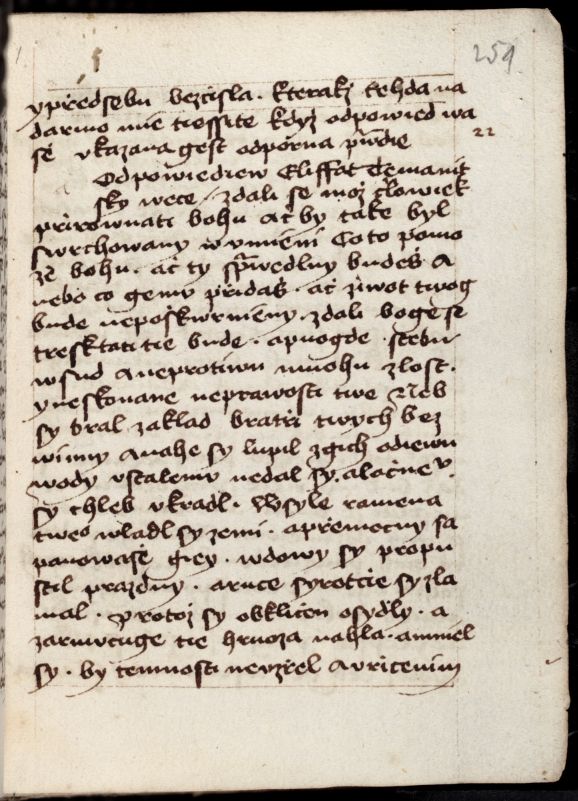 259
ypřed sebu bezcisla · kterakž tehda na
darmo mie tiessite když odpowied wa
sě vkazana gest odporna prawdie
22
Odpowiediew Eliffat Themanit
sky wece · zdali se mož člowiek
prirownati bohu ač by také byl
swrchowany w vmieni Co to pomo
ze bohu · ač ty sprawedlny budeš A
nebo co gemu přidaš · ač ziwot twog
bude neposkwrnieny · zdali boge se
tresktati tie bude · apuogde stebu
wsud aneprotiwu mnohu zlost ·
yneskonane neprawosti twe Neb
sy bral zaklad bratři twych bez
winny anahe sy lupil zgich odiewu
wody vstalemu nedal sy · alačne°
sy chleb vkradl · Wsyle ramena
tweo wladl sy zemi · apřemocny sa
panowaše giey · wdowy sy propu
stil prazdny · aruce syrotcie sy zla
mal · Protož sy obkličen osydly · a
zarmucuge tie hruoza nahla · amniel
sy · by temnosti neuzřel auricenim